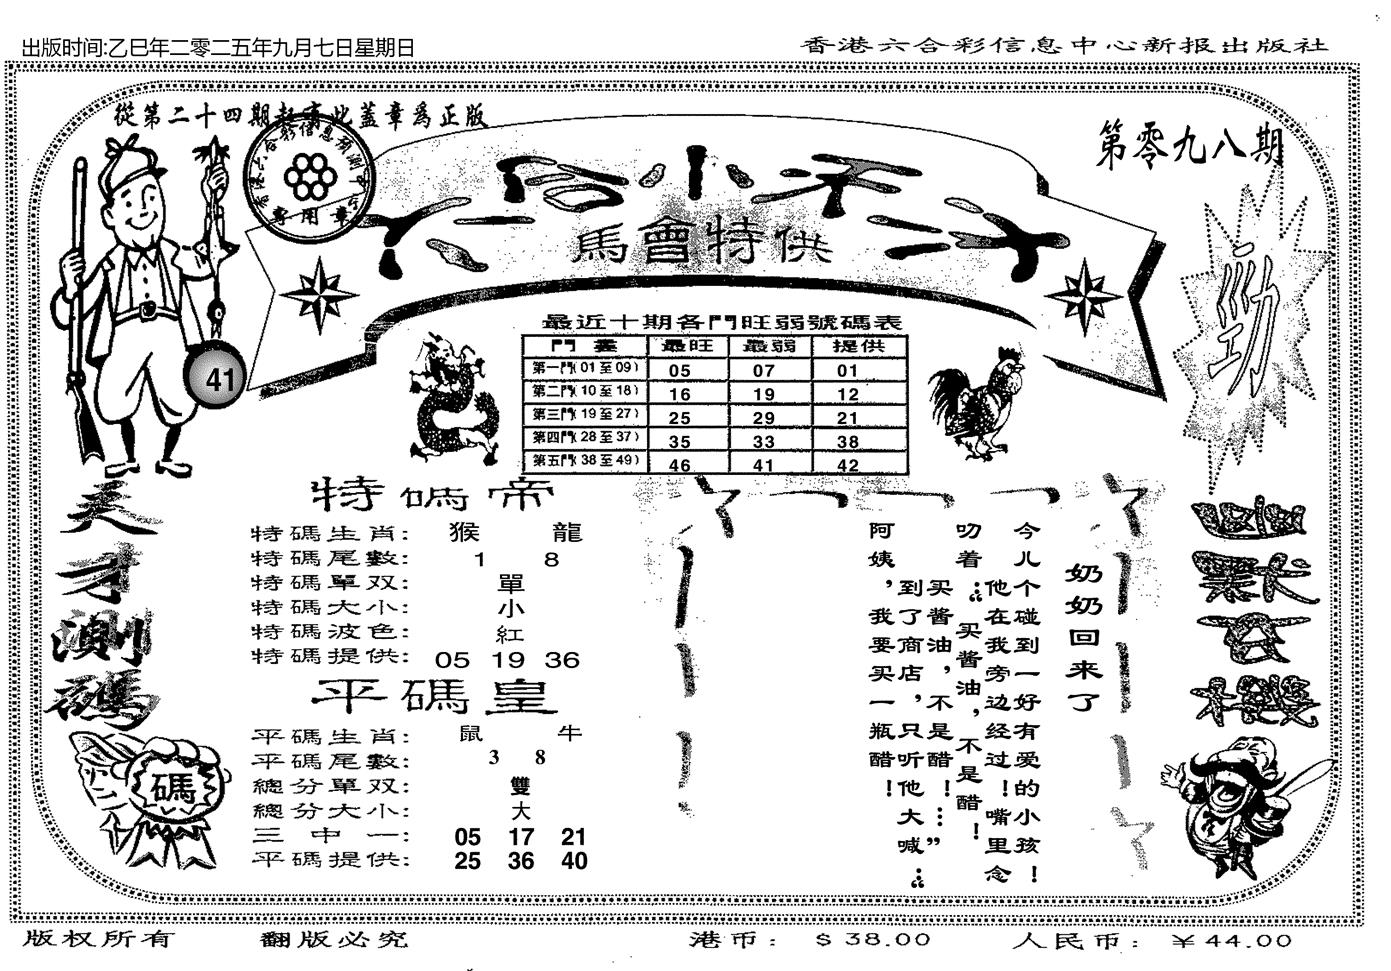 出版时间:乙巳年二零二五年九月七日星期日
香港六合彩信息中心新报出版社
從第二十四期起靠此蓋章為正版
香港六合彩信息預測中心
專用章
第零九八期
六合小天才
馬會特供
勁
41
最近十期各門旺弱號碼表
門 數 最旺 最弱 提供
第一門(01至09) 05 07 01
第二門(10至18) 16 19 12
第三門(19至27) 25 29 21
第四門(28至37) 35 33 38
第五門(38至49) 46 41 42
天才測碼
特碼帝
特碼生肖: 猴 龍
特碼尾數: 1 8
特碼單双: 單
特碼大小: 小
特碼波色: 紅
特碼提供: 05 19 36
平碼皇
平碼生肖: 鼠 牛
平碼尾數: 3 8
總分單双: 雙
總分大小: 大
三中一: 05 17 21
平碼提供: 25 36 40
碼
奶奶回来了
今儿个碰到一好有爱的小孩!
他在我旁边经过!嘴里念
叨着:“买酱油,不是醋!
买酱油,不是醋!…”
到了商店,只听他大喊:“
阿姨,我要买一瓶醋!
版权所有
翻版必究
港币: $38.00
人民币: ¥44.00